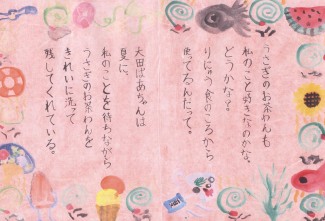 うさぎのお茶わんも
私のこと好きなのかな。
どうかな？。
りにゅう食のころから
使ってるんだって。
大田ばあちゃんは
夏に、
私のことを待ちながら
うさぎのお茶わんを
きれいに洗って
残してくれている。